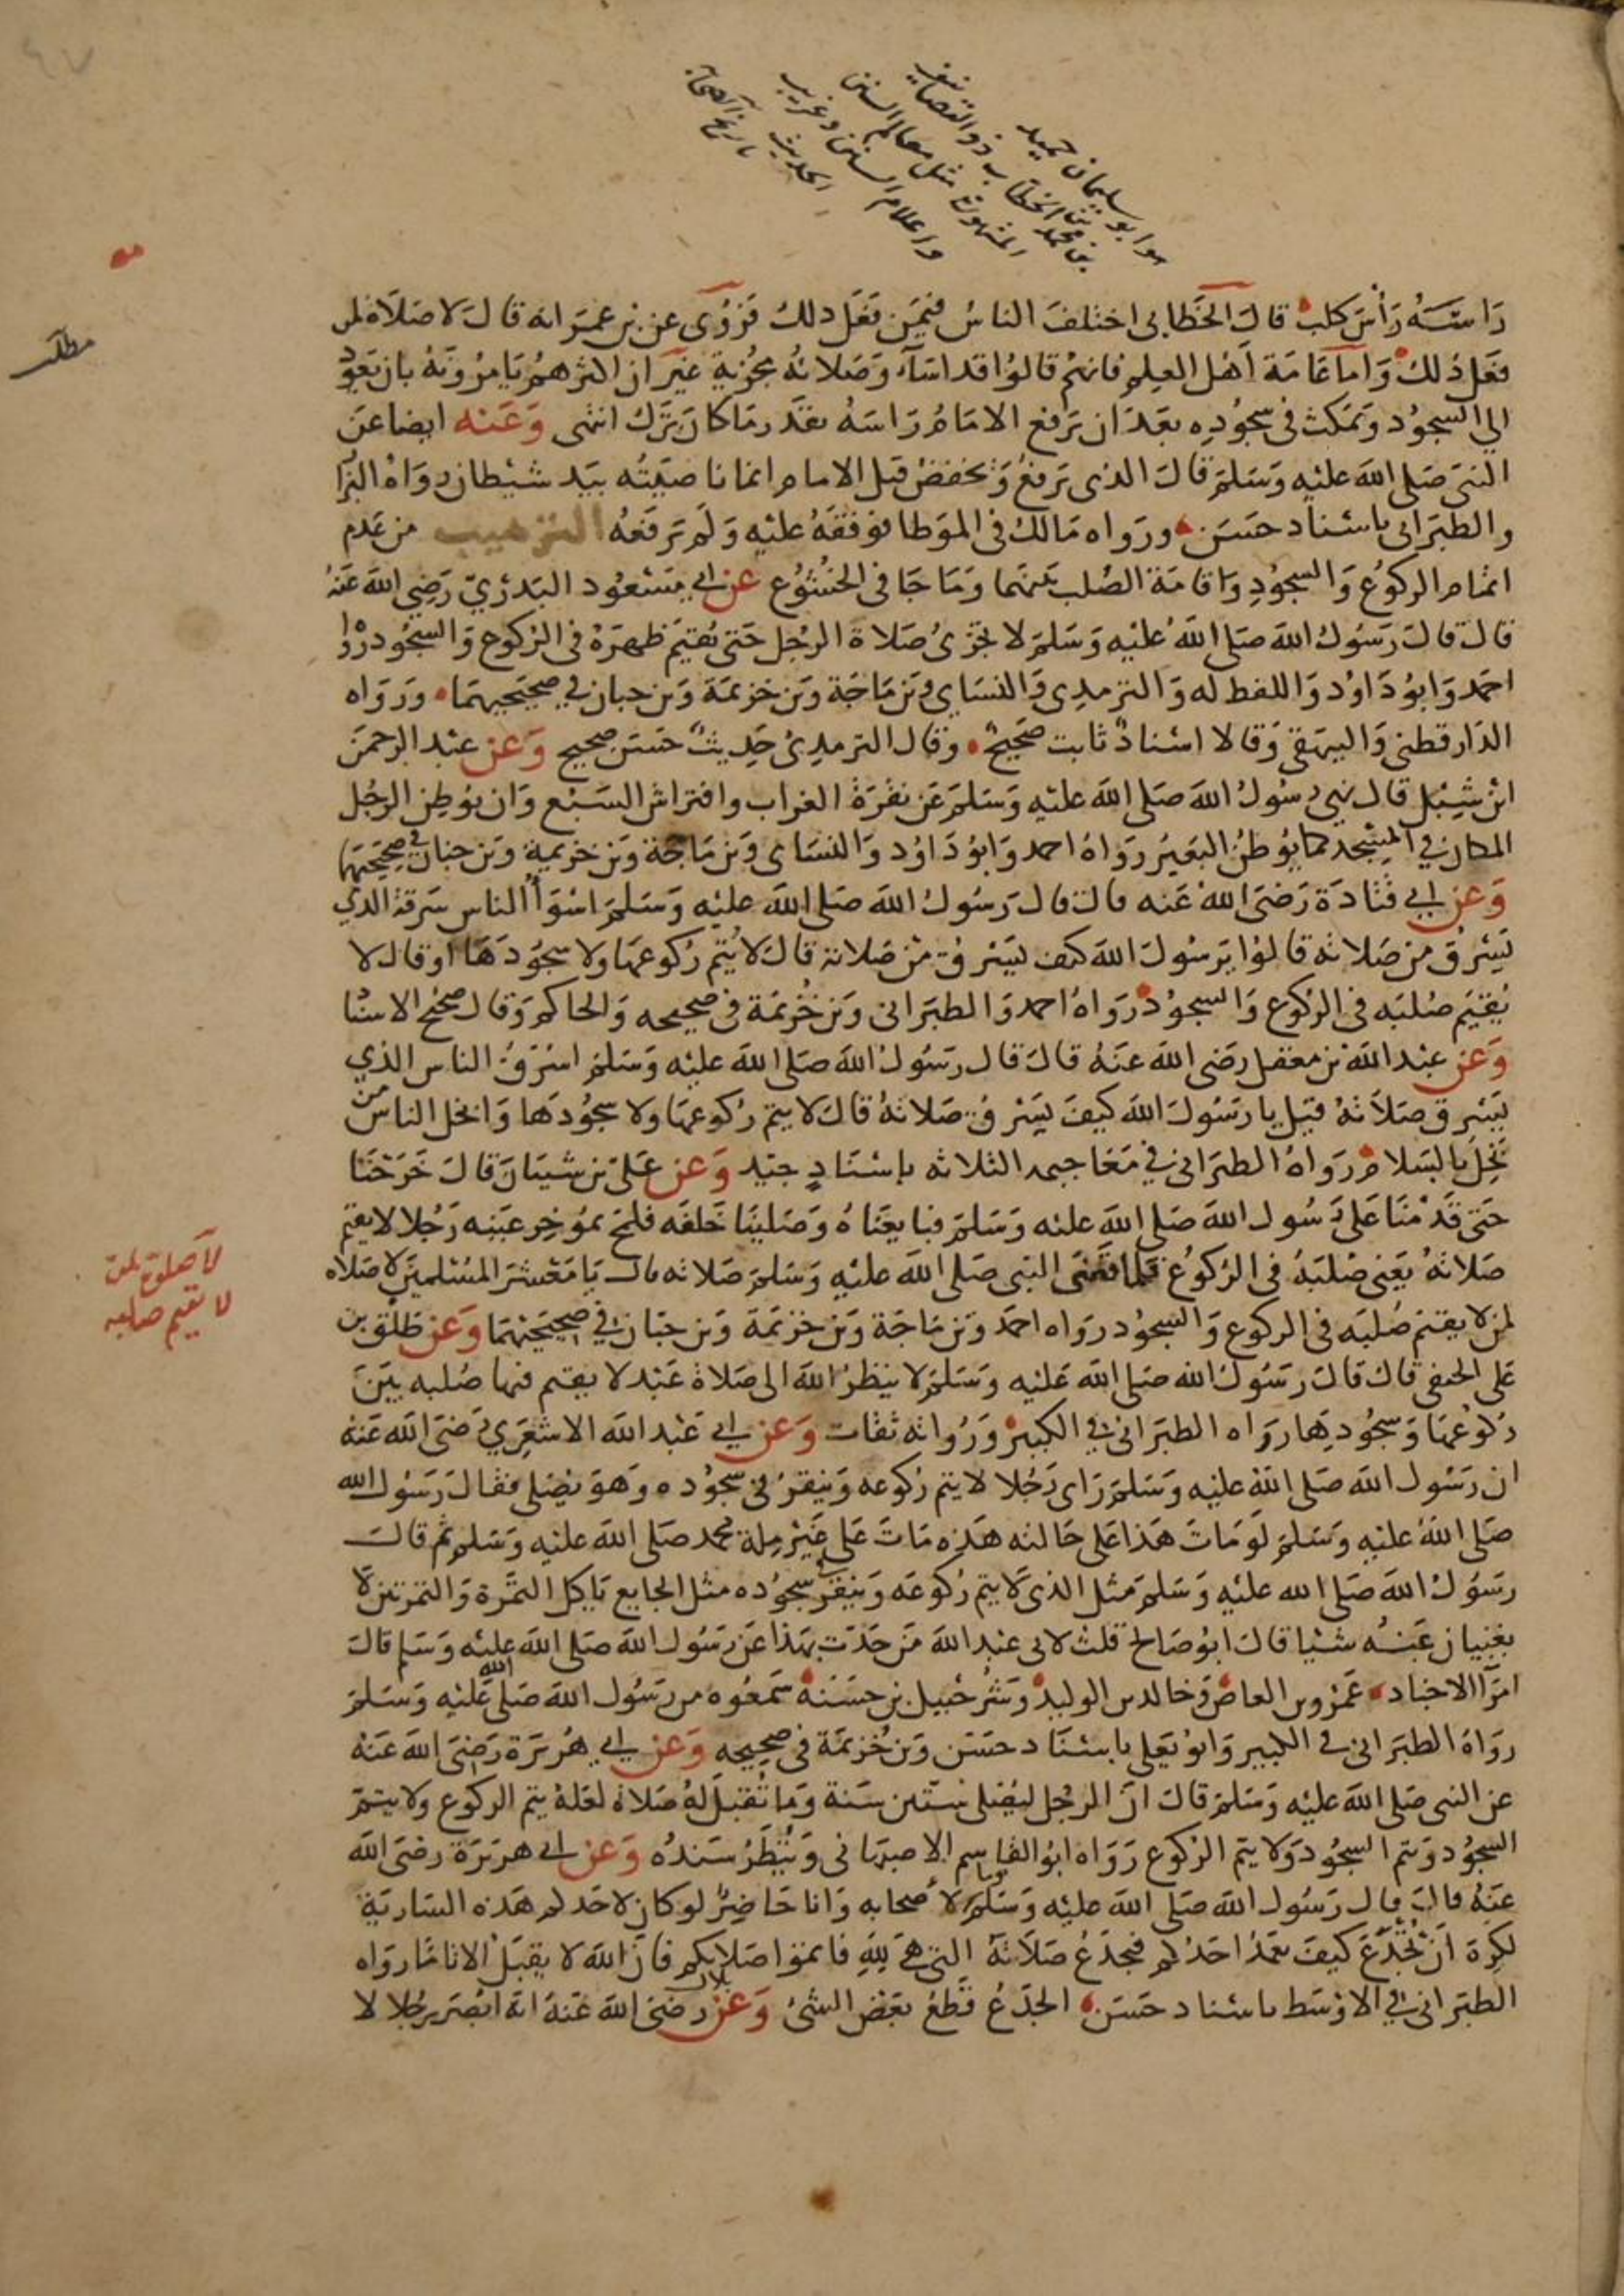 ابو سليمان حميد
بن محمد بن الخطاب ذو التصانيف
المشهورة مثل معالم السنن
واعلام السنن وغريب
الحديث
راسه رأس كلب قال الخطابي اختلف الناس فيمن فعل ذلك فروى عن بن عمر انه قال لا صلاة لمن
فعل ذلك واما عامة اهل العلم فانهم قالوا قد اساء وصلاته مجزية غير ان اكثرهم يامرونه بان يعود
الي السجود ويمكث في سجوده بعد ان يرفع الامام راسه بقدر ما كان ترك انتهى وعنه ايضا عن
النبي صلى الله عليه وسلم قال الذي يرفع ويخفض قبل الامام انما ناصيته بيد شيطان رواه البزا
والطبراني باسناد حسن ورواه مالك في الموطا فوقفه عليه ولم يرفعه الترهيب من عدم
اتمام الركوع والسجود واقامة الصلب بينهما وما جا في الخشوع عن ابي مسعود البدري رضي الله عنه
قال قال رسول الله صلى الله عليه وسلم لا تجزئ صلاة الرجل حتى يقيم ظهره في الركوع والسجود رواه
احمد وابو داود واللفظ له والترمدي والنساي وبن ماجة وبن خزيمة وبن حبان في صحيحيهما ورواه
الدارقطني والبيهقي وقالا اسناد ثابت صحيح وقال الترمدي حديث حسن صحيح وعن عبد الرحمن
ابن شبل قال نهي رسول الله صلى الله عليه وسلم عن نقرة الغراب وافتراش السبع وان يوطن الرجل
المكان في المسجد كما يوطن البعير رواه احمد وابو داود والنساى وبن ماجة وبن خزيمة وبن حبان في صحيحيهما
وعن ابي قتادة رضى الله عنه قال قال رسول الله صلى الله عليه وسلم اسوأ الناس سرقة الذي
يسرق من صلاته قالوا يرسول الله كيف يسرق من صلاته قال لا يتم ركوعها ولا سجودها او قال لا
يقيم صلبه في الركوع والسجود رواه احمد والطبراني وبن خزيمة في صحيحه والحاكم وقال صحيح الاسنا
وعن عبد الله بن مغفل رضى الله عنه قال قال رسول الله صلى الله عليه وسلم اسرق الناس الذي
يسرق صلاته قيل يا رسول الله كيف يسرق صلاته قال لا يتم ركوعها ولا سجودها وابخل الناس من
بخل بالسلام رواه الطبراني في معاجيمه الثلاثه بإسناد جيد وعن على بن شيبان قال خرجنا
حتى قدمنا على رسول الله صلى الله عليه وسلم فبايعناه وصلينا خلفه فلمح بموخر عينه رجلا لا يقيم
صلاته يعنى صلبه في الركوع فلما قضى النبي صلى الله عليه وسلم صلاته قال يا معشر المسلمين لا صلاه
لمن لا يقيم صلبه في الركوع والسجود رواه احمد وبن ماجة وبن خزيمة وبن حبان في صحيحيهما وعن طلق بن
على الحنفي قال قال رسول الله صلى الله عليه وسلم لا ينظر الله الى صلاة عبد لا يقيم فيها صلبه بين
ركوعها وسجودها رواه الطبراني في الكبير ورواته ثقات وعن ابي عبد الله الاشعري رضى الله عنه
ان رسول الله صلى الله عليه وسلم راى رجلا لا يتم ركوعه وينقر في سجوده وهو يصلى فقال رسول الله
صلى الله عليه وسلم لو مات هذا على حالته هذه مات على غير ملة محمد صلى الله عليه وسلم ثم قال
رسول الله صلى الله عليه وسلم مثل الذى لا يتم ركوعه وينقر في سجوده مثل الجايع ياكل التمرة والتمرتين لا
يغنيان عنه شيا قال ابو صالح قلت لابي عبد الله من حدث بهذا عن رسول الله صلى الله عليه وسلم قال
امرآ الاجناد عمرو بن العاص وخالد بن الوليد وشرحبيل بن حسنة سمعوه من رسول الله صلى الله عليه وسلم
رواه الطبراني في الكبير وابو يعلى باسناد حسن وبن خزيمة في صحيحه وعن ابي هريرة رضى الله عنه
عن النبي صلى الله عليه وسلم قال ان الرجل ليصلى ستين سنة وما تقبل له صلاة لعله يتم الركوع ولا يتم
السجود ويتم السجود ولا يتم الركوع رواه ابو القاسم الاصبهاني وينظر سنده وعن ابي هريرة رضى الله
عنه قال قال رسول الله صلى الله عليه وسلم يوما لاصحابه وانا حاضر لو كان لاحدكم هذه السارية
لكره ان تجدع كيف يعمد احدكم فيجدع صلاته التي هي لله فاتموا صلاتكم فان الله لا يقبل الا تاما رواه
الطبراني في الاوسط باسناد حسن الجدع قطع بعض الشئ وعن بلال رضى الله عنه انه ابصر رجلا لا
مطلب
لا صلوة لمن
لا يقيم صلبه